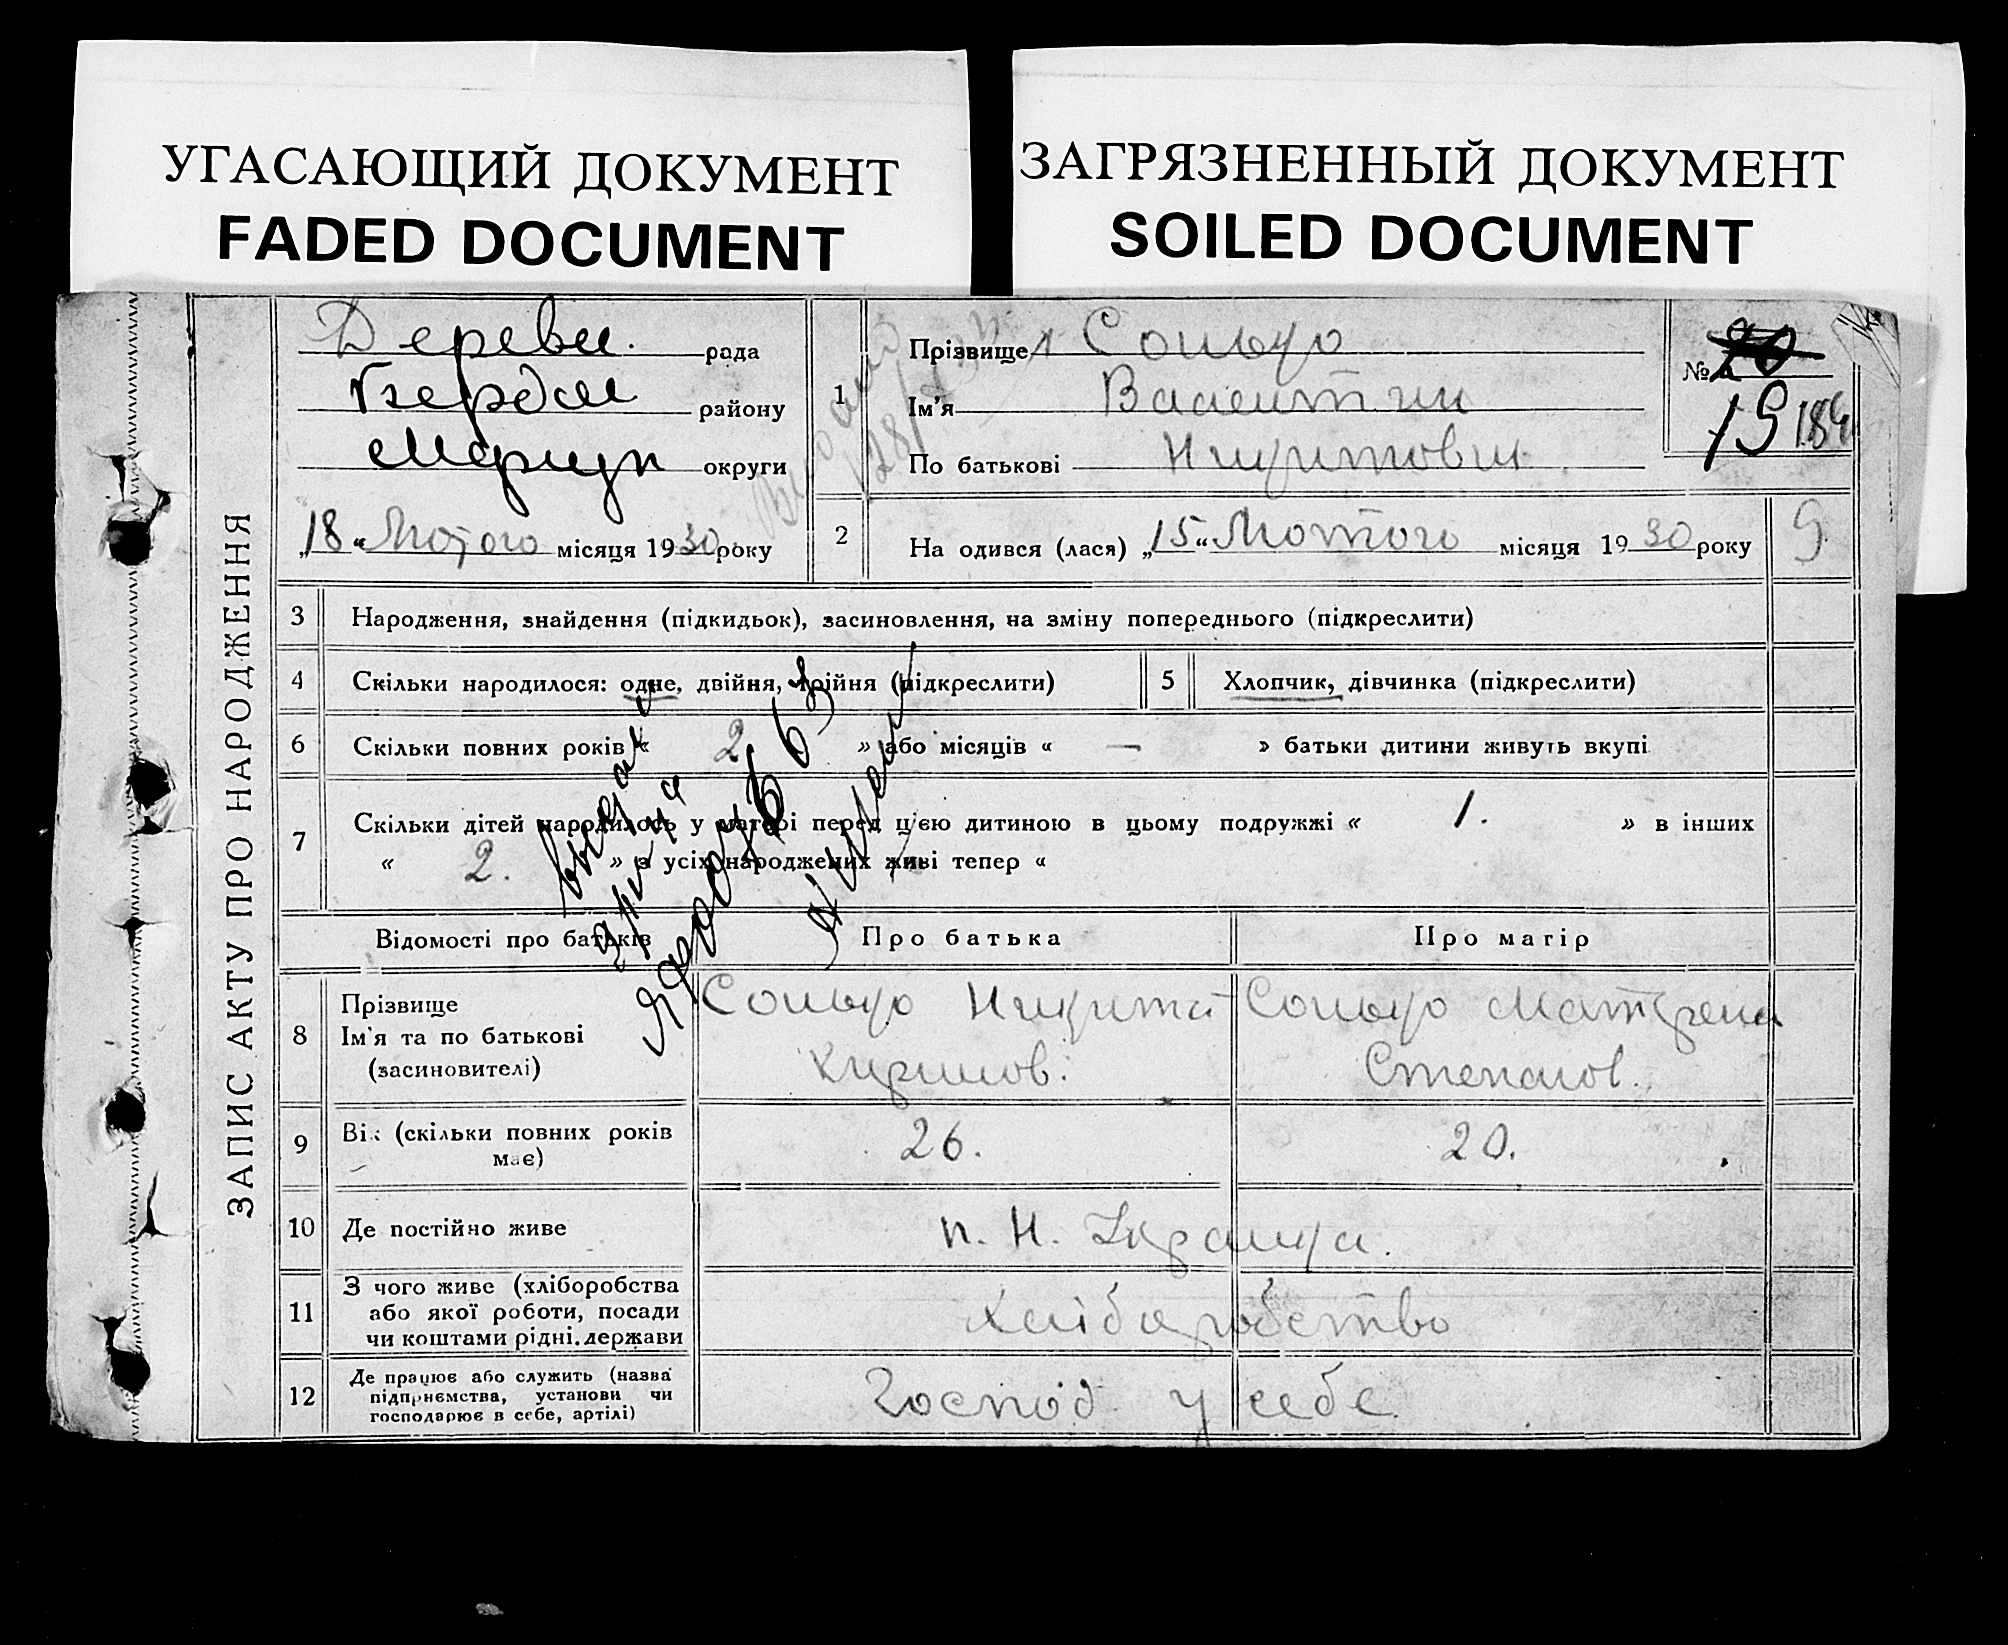 УГАСАЮЩИЙ ДОКУМЕНТ
FADED DOCUMENT
ЗАГРЯЗНЕННЫЙ ДОКУМЕНТ
SOILED DOCUMENT
ЗАПИС АКТУ ПРО НАРОДЖЕННЯ
рада
району
округи
„18“ Лютого місяця 1930 року
1
Прізвище
Ім'я Валентин
По батькові
№
19 184
2
На одився (лася) „15“ Лютого місяця 1930 року
9
3 Народження, знайдення (підкидьок), засиновлення, на зміну попереднього (підкреслити)
4 Скільки народилося: одне, двійня, трійня (підкреслити)
5 Хлопчик, дівчинка (підкреслити)
6 Скільки повних років « 2 » або місяців « — » батьки дитини живуть вкупі
7 Скільки дітей народилось у матері перед ц'єю дитиною в цьому подружжі « 1. » в інших
« 2. » з усіх народжених живі тепер «
Відомості про батьків
Про батька
Про матір
8 Прізвище
Ім'я та по батькові
(засиновителі)
Никита
Степанов.
9 Вік (скільки повних років
має)
26.
20.
10 Де постійно живе
п. Н.
11 З чого живе (хліборобства
або якої роботи, посади
чи коштами рідні.держави
Хліборобство
12 Де працює або служить (назва
підприємства, установи чи
господарює в себе, артілі)
Господ у себе